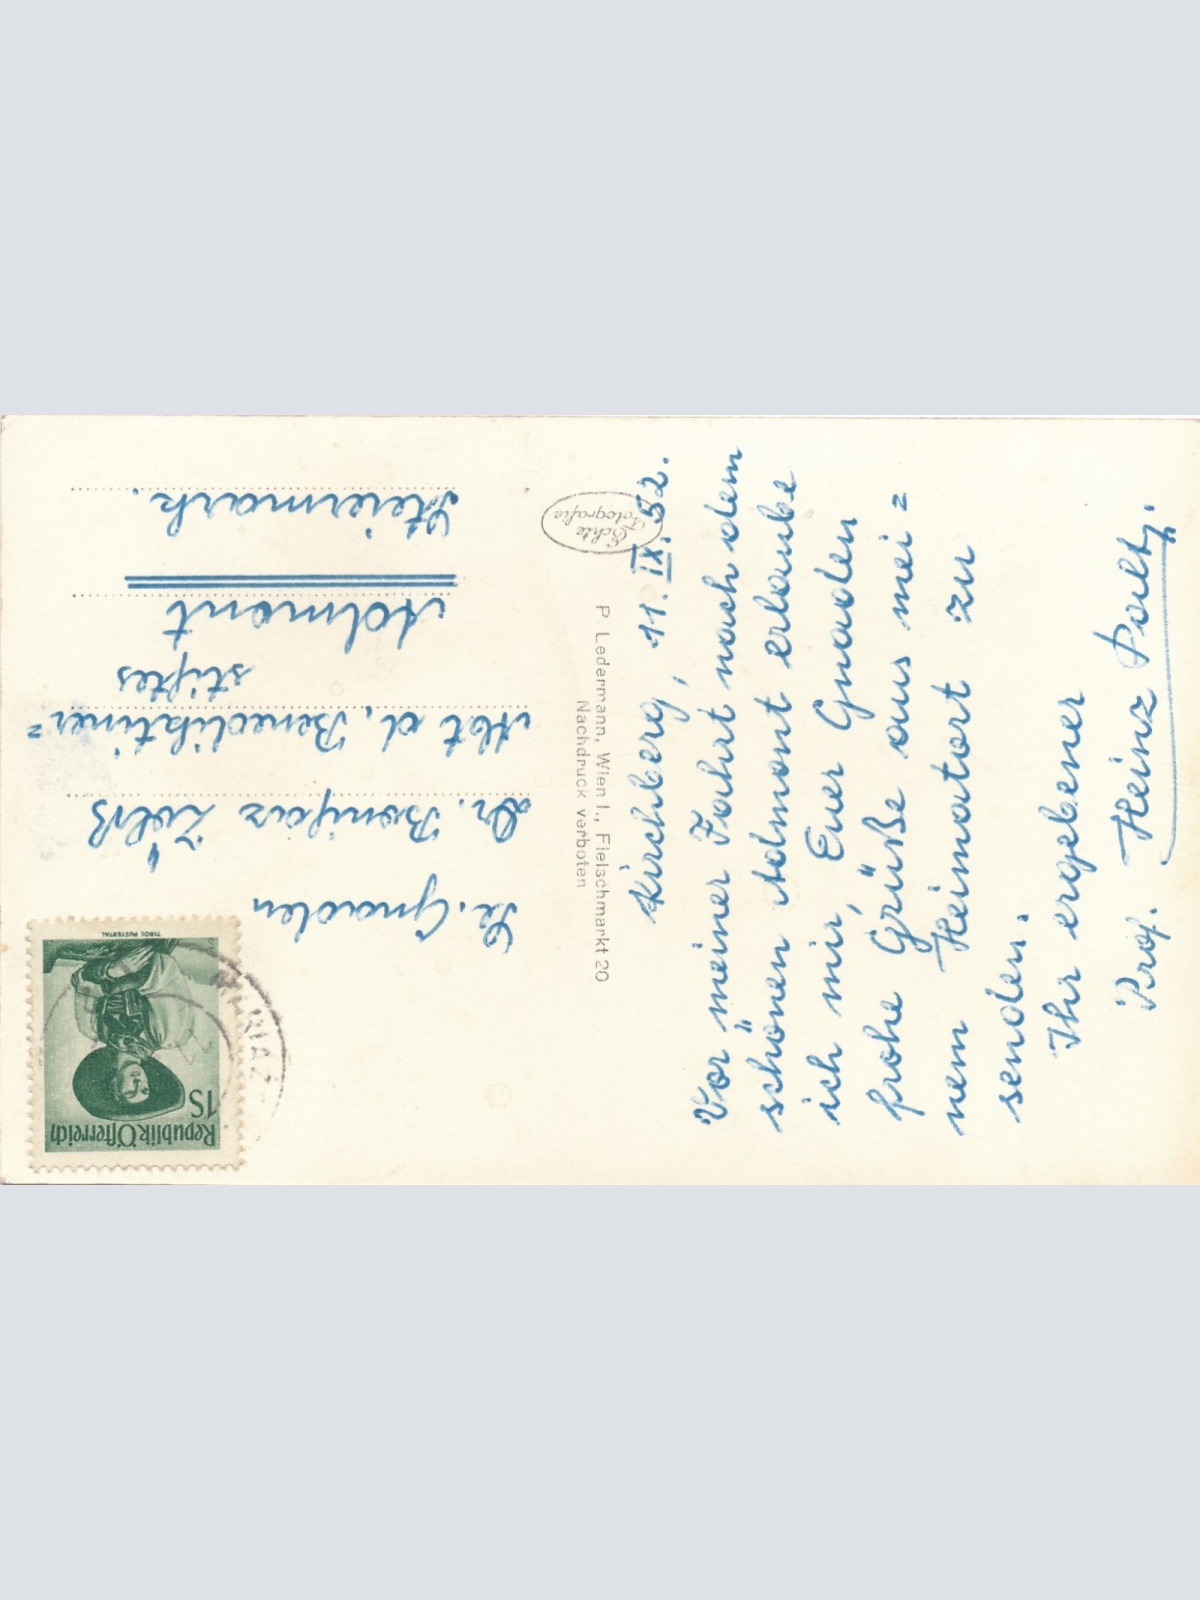 Kirchberg, 11. IX. 52.
Vor meiner Fahrt nach dem
schönen Admont erlaube
ich mir, Euer Gnaden
frohe Grüße aus mei=
nem Heimatort zu
senden.
Ihr ergebener
Prof. Heinz
P. Ledermann, Wien I., Fleischmarkt 20
Nachdruck verboten
Echte
Fotografie
Republik Österreich
1S
TIROL PUSTERTAL
Sr. Gnaden
Dr. Bonifaz Zölß
Abt d. Benediktiner=
stiftes
Admont
Steiermark.